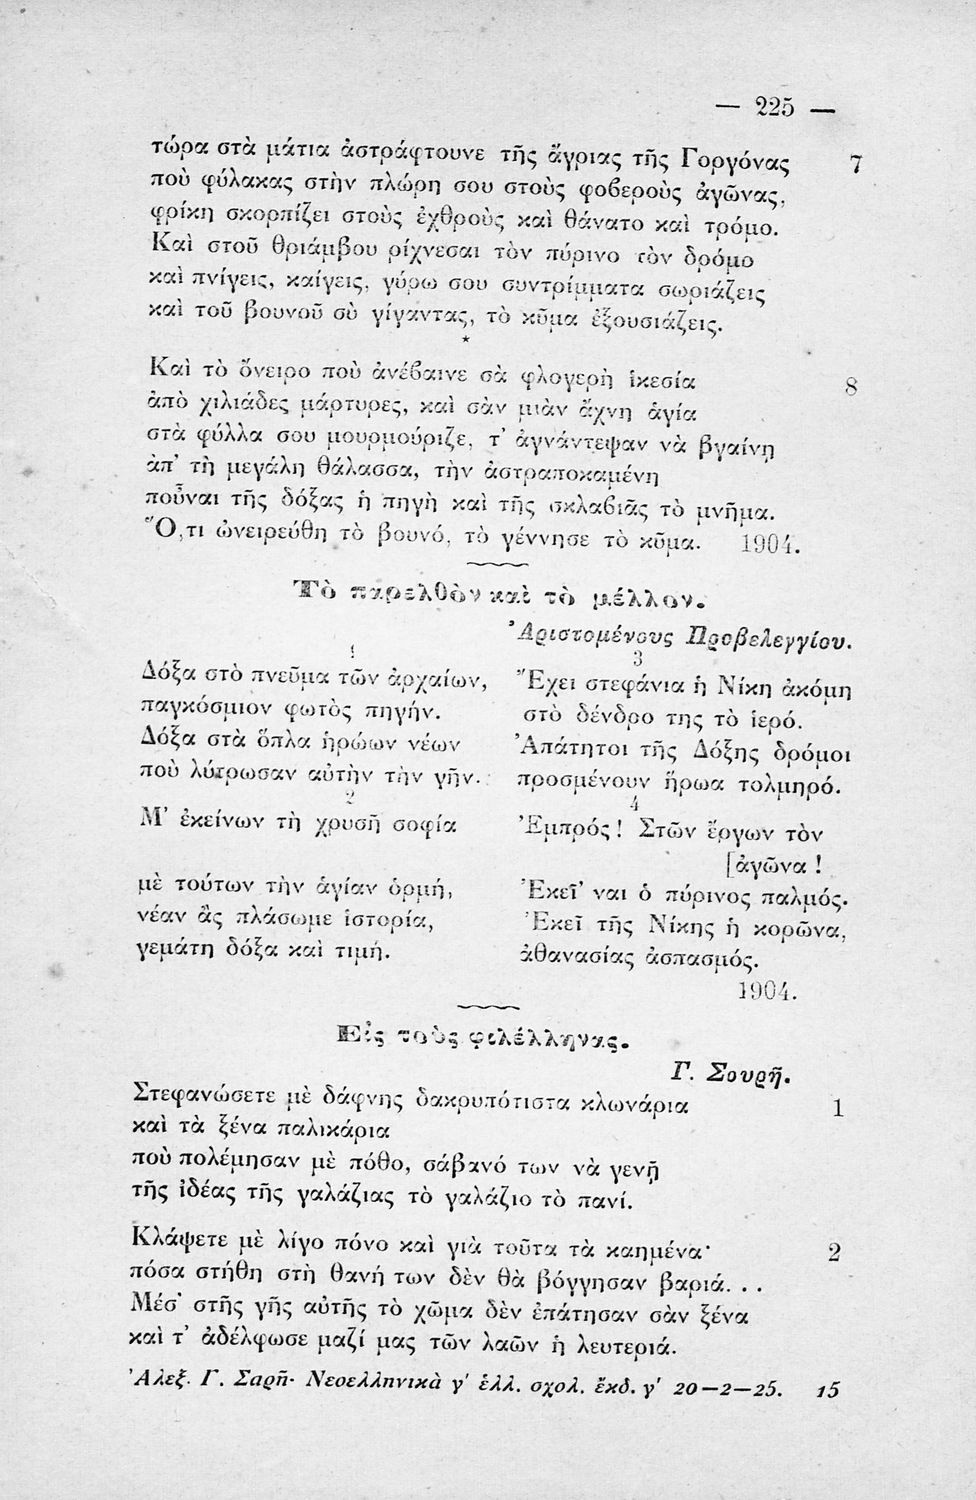 — 225 —
τώρα στὰ μάτια ἀστράφτουνε τῆς ἄγριας τῆς Γοργόνας 7
ποὺ φύλακας στὴν πλώρη σου στοὺς φοβεροὺς ἀγῶνας,
φρίκη σκορπίζει στοὺς ἐχθροὺς καὶ θάνατο καὶ τρόμο.
Καὶ στοῦ θριάμβου ρίχνεσαι τὸν πύρινο τὸν δρόμο
καὶ πνίγεις, καίγεις, γύρω σου συντρίμματα σωριάζεις
καὶ τοῦ βουνοῦ σὺ γίγαντας, τὸ κῦμα ἐξουσιάζεις.
*
Καὶ τὸ ὄνειρο ποὺ ἀνέβαινε σὰ φλογερὴ ἱκεσία 8
ἀπὸ χιλιάδες μάρτυρες, καὶ σὰν μιὰν ἄχνη ἁγία
στὰ φύλλα σου μουρμούριζε, τ' ἀγνάντεψαν νὰ βγαίνῃ
ἀπ' τὴ μεγάλη θάλασσα, τὴν ἀστραποκαμένη
ποὖναι τῆς δόξας ἡ πηγὴ καὶ τῆς σκλαβιᾶς τὸ μνῆμα.
Ὅ,τι ὠνειρεύθη τὸ βουνό, τὸ γέννησε τὸ κῦμα. 1904.
Τὸ παρελθὸν καὶ τὸ μέλλον.
Ἀριστομένους Προβελεγγίου.
1
Δόξα στὸ πνεῦμα τῶν ἀρχαίων,
παγκόσμιον φωτὸς πηγήν.
Δόξα στὰ ὅπλα ἡρώων νέων
ποὺ λύτρωσαν αὐτὴν τὴν γῆν.
2
Μ' ἐκείνων τὴ χρυσῆ σοφία
μὲ τούτων τὴν ἁγίαν ὁρμή,
νέαν ἂς πλάσωμε ἱστορία,
γεμάτη δόξα καὶ τιμή.
3
Ἔχει στεφάνια ἡ Νίκη ἀκόμη
στὸ δένδρο της τὸ ἱερό.
Ἀπάτητοι τῆς Δόξης δρόμοι
προσμένουν ἥρωα τολμηρό.
4
Ἐμπρός! Στῶν ἔργων τὸν
[ἀγῶνα!
Ἐκεῖ' ναι ὁ πύρινος παλμός.
Ἐκεῖ τῆς Νίκης ἡ κορῶνα,
ἀθανασίας ἀσπασμός.
1904.
Εἰς τοὺς φιλέλληνας.
Γ. Σουρῆ.
Στεφανώσετε μὲ δάφνης δακρυπότιστα κλωνάρια 1
καὶ τὰ ξένα παλικάρια
ποὺ πολέμησαν μὲ πόθο, σάβανό των νὰ γενῇ
τῆς ἰδέας τῆς γαλάζιας τὸ γαλάζιο τὸ πανί.
Κλάψετε μὲ λίγο πόνο καὶ γιὰ τοῦτα τὰ καημένα· 2
πόσα στήθη στὴ θανή των δὲν θὰ βόγγησαν βαριά...
Μέσ' στῆς γῆς αὐτῆς τὸ χῶμα δὲν ἐπάτησαν σὰν ξένα
καὶ τ' ἀδέλφωσε μαζί μας τῶν λαῶν ἡ λευτεριά.
Ἀλεξ. Γ. Σαρῆ· Νεοελληνικὰ γ' ἑλλ. σχολ. ἔκδ. γ' 20—2—25. 15